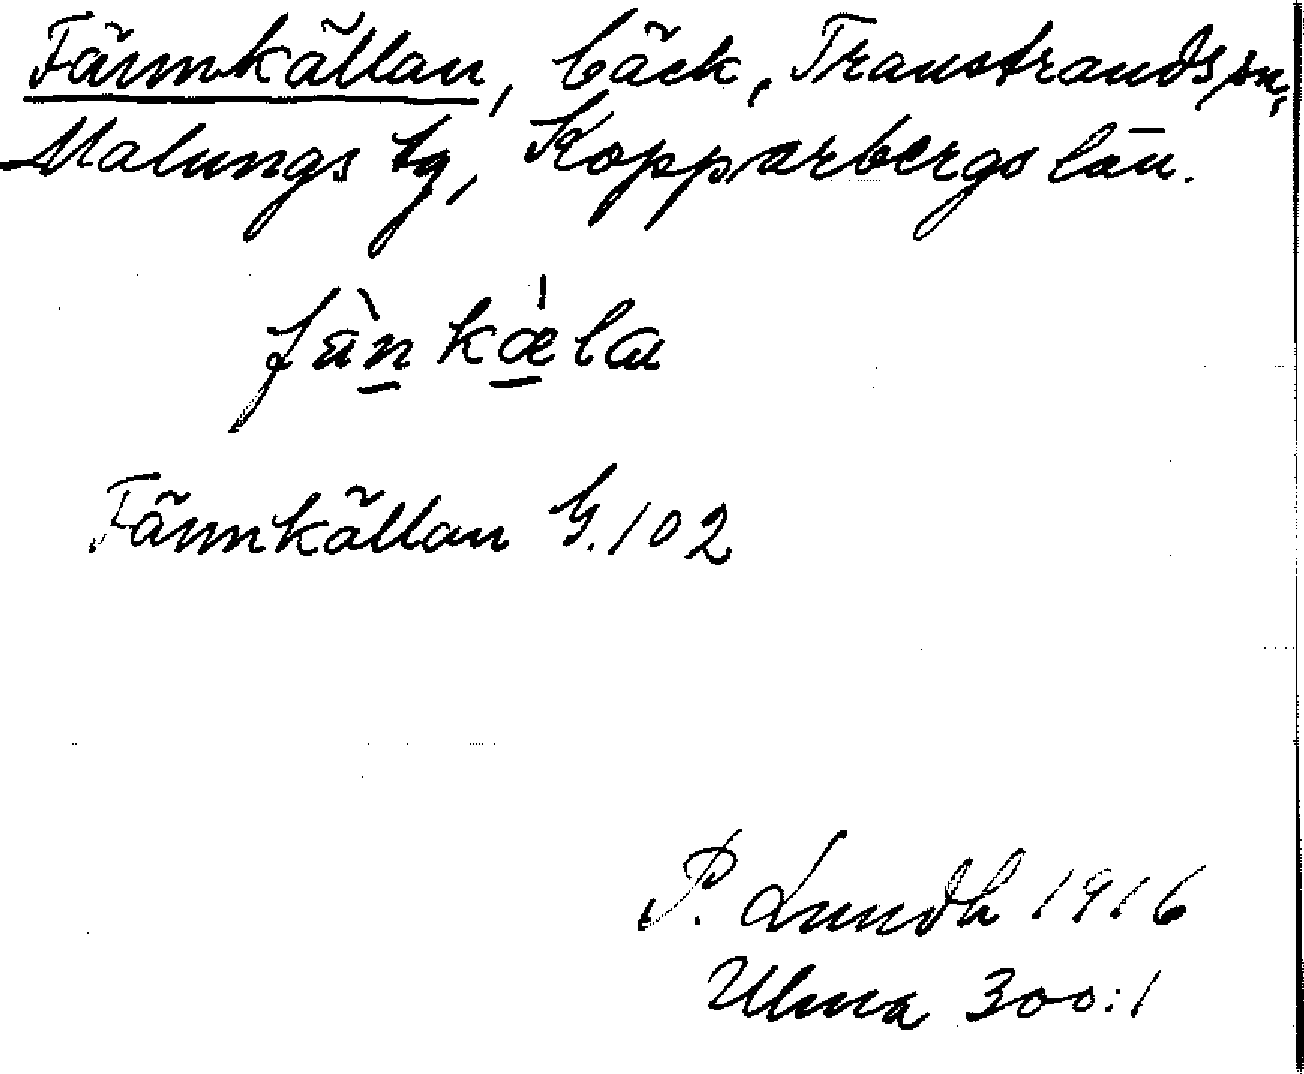 Färnkällan, bäck, Transtrands sn,
Malungs tg, Kopparbergs län.
fàn kæla
Färnkällan G. 102
P. Lundh 1916
Ulma 300:1